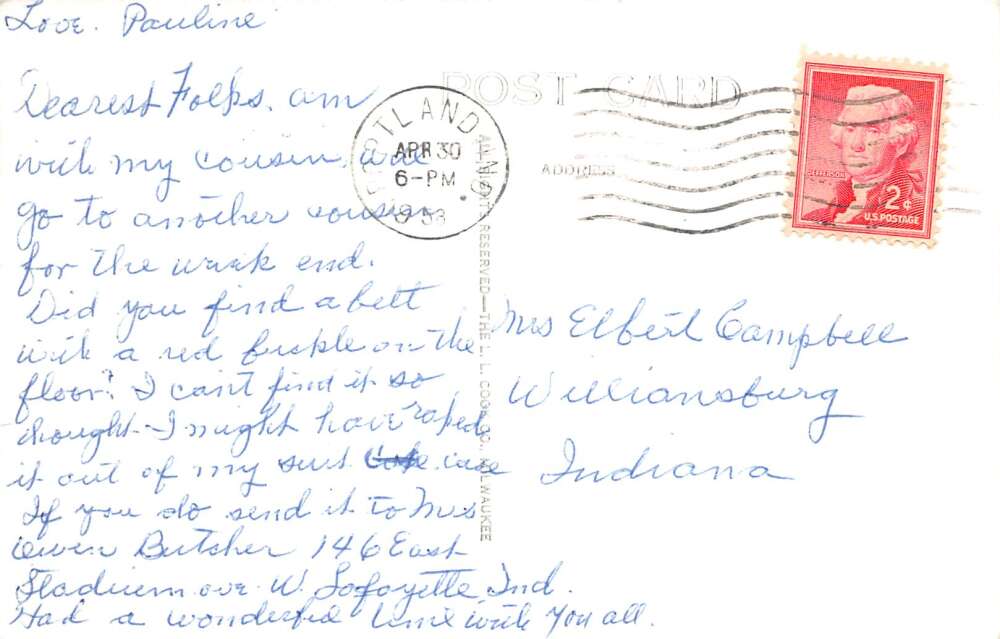 Love. Pauline
Dearest Folks. am
with my cousin. will
go to another cousin
for the week end.
Did you find a belt
with a red buckle on the
floor? I can't find it so
thought I might have roped
it out of my suit case
If you do send it to Mrs
Owen Butcher 146 East
Stadium ave W. Lafayette Ind.
Had a wonderful time with you all.
POST CARD
PORTLAND
APR 30
6-PM
ADDRESS
JEFFERSON
2¢
U.S. POSTAGE
RESERVED—THE L. L. COOK CO., MILWAUKEE
Mrs Elbert Campbell
Williansburg
Indiana